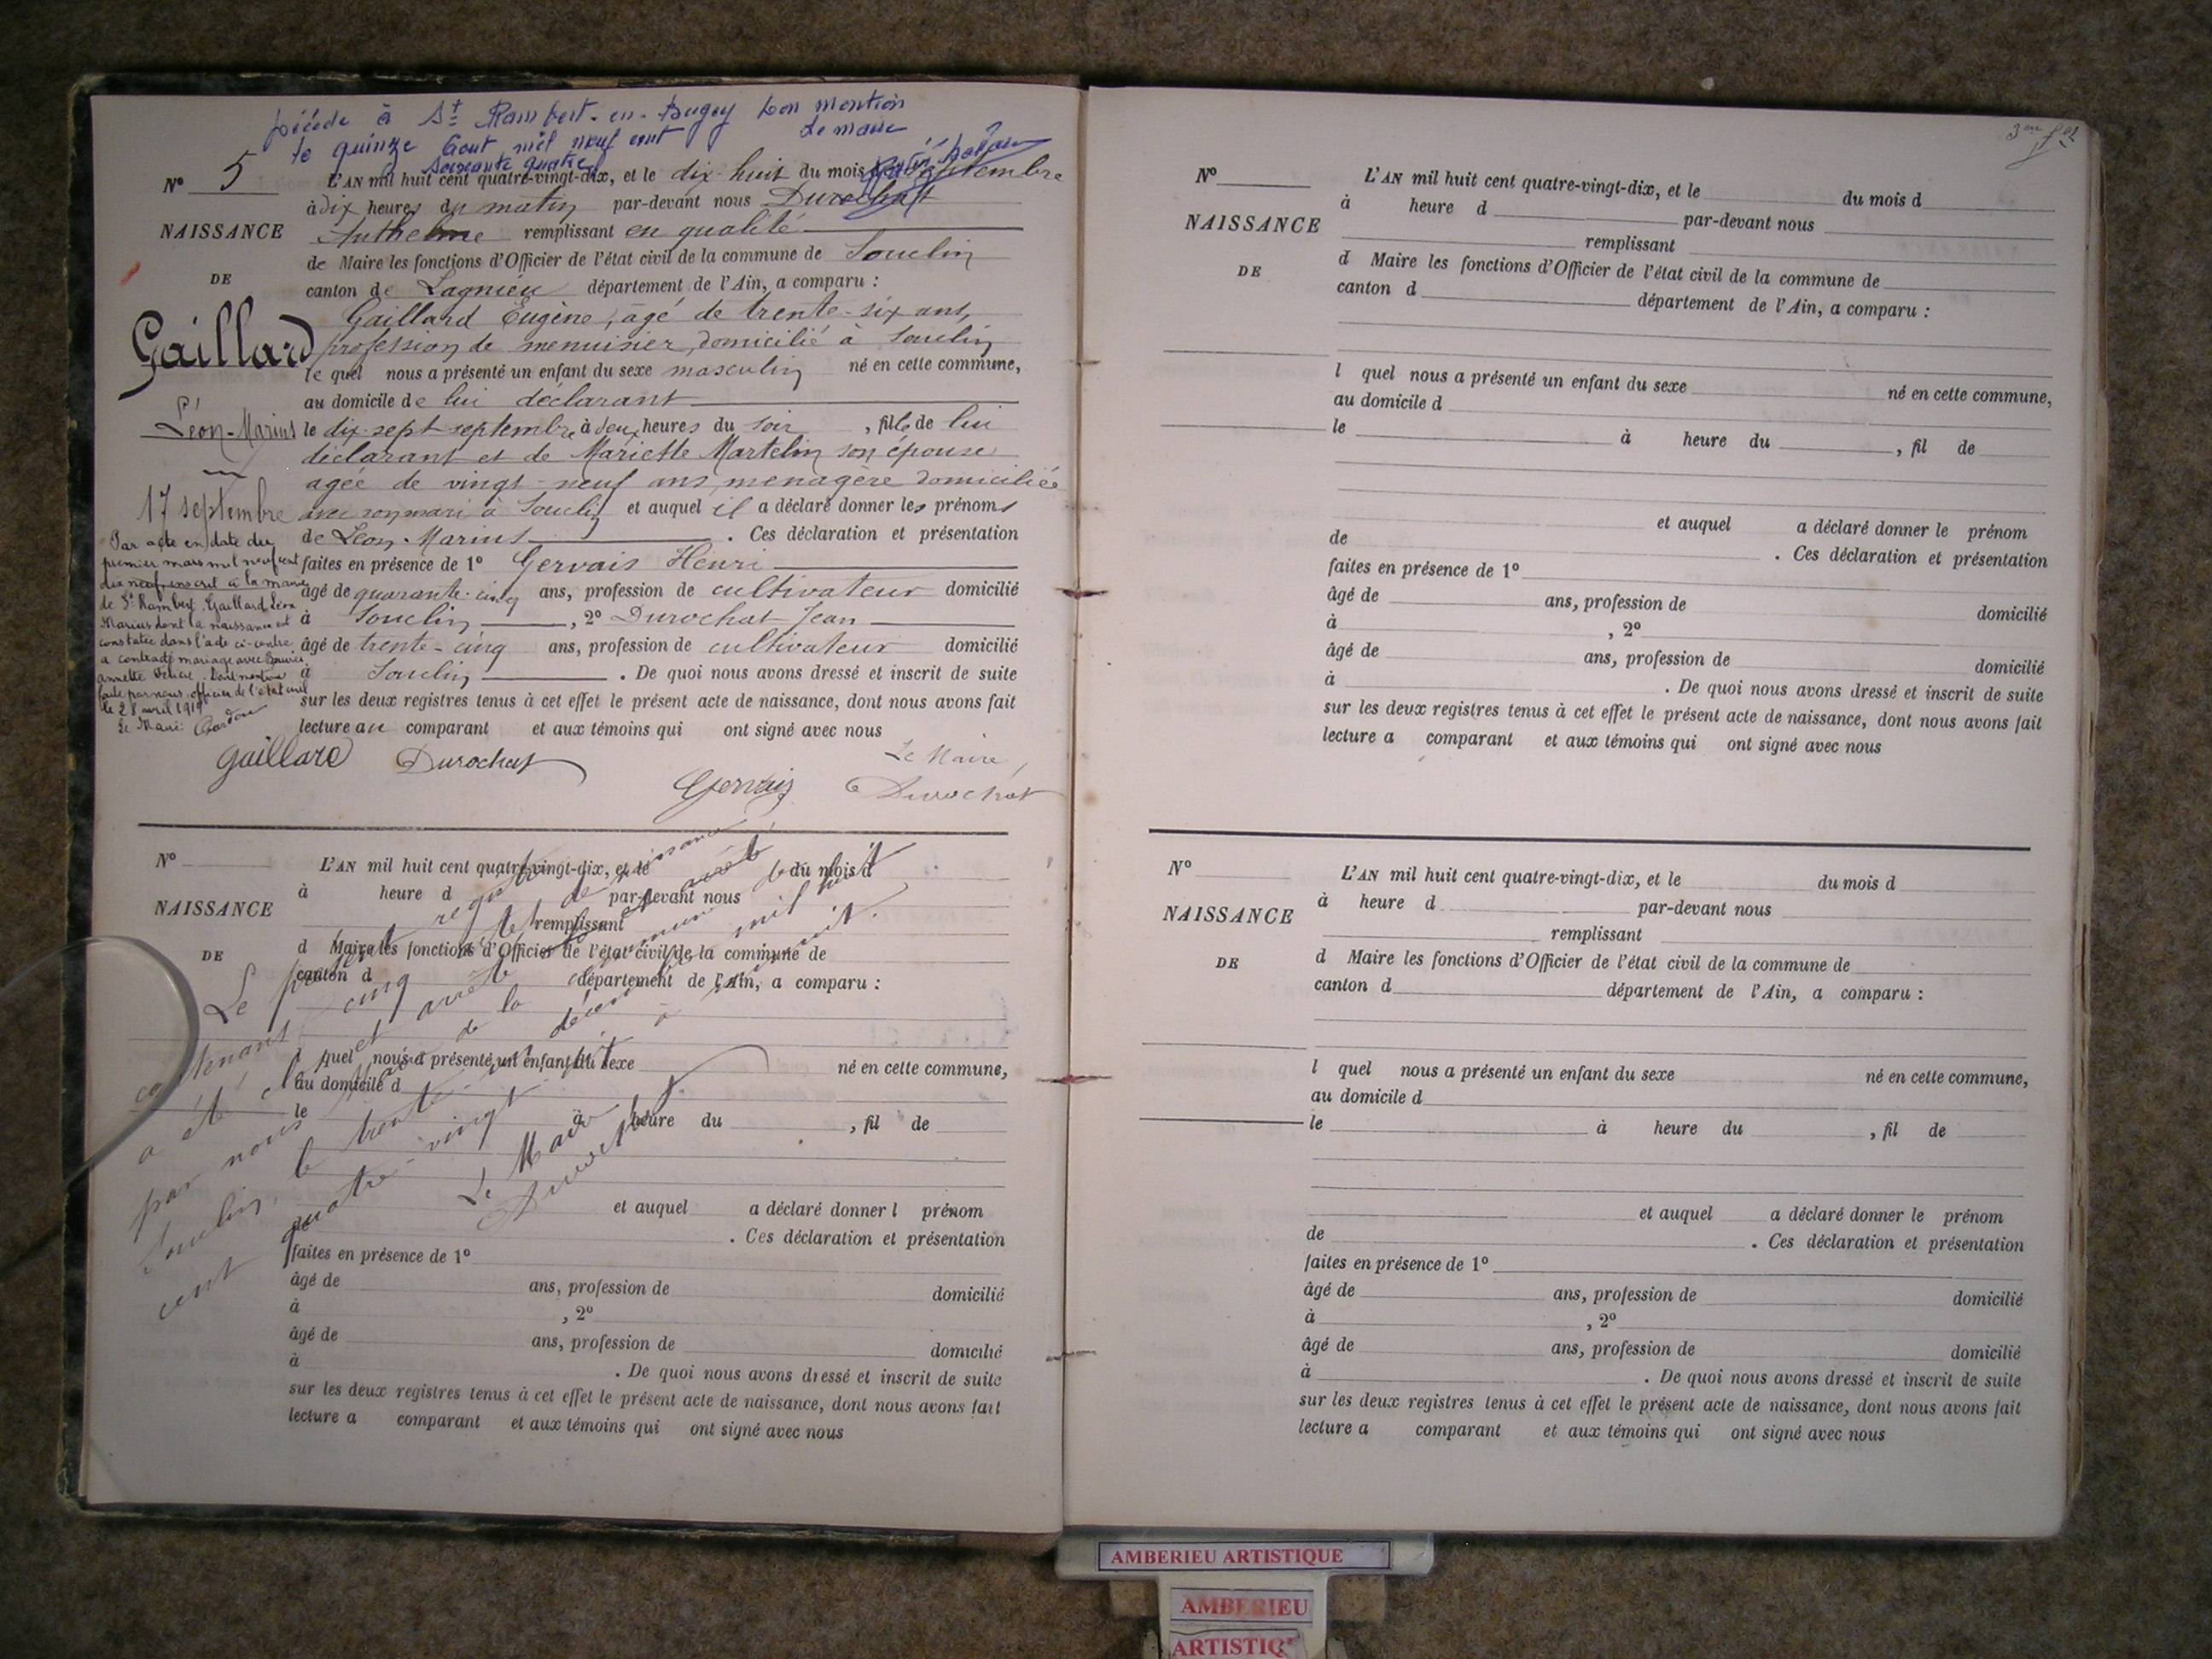 Décédé à St Rambert-en-Bugey Dont mention
le quinze Aout mil neuf cent Le maire
soixante quatre
N° 5
NAISSANCE
DE
Gaillard
Léon-Marius
17 septembre
Par acte en date du
premier mars mil neuf cent
dix neuf inscrit à la mairie
de St Rambert, Gaillard Léon
Marius dont la naissance est
constatée dans l'acte ci-contre
a contracté mariage avec
annette . Dont mention
faite par nous, officier de l'état civil
le 28 avril 1919
Le Maire
L'AN mil huit cent quatre-vingt-dix, et le dix-huit du mois de septembre
à dix heures du matin par-devant nous Durochat
Anthelme remplissant en qualité
de Maire les fonctions d'Officier de l'état civil de la commune de Souclin
canton de Lagnieu département de l'Ain, a comparu :
Gaillard Eugène, âgé de trente-six ans,
profession de menuisier, domicilié à Souclin
le quel nous a présenté un enfant du sexe masculin né en cette commune,
au domicile de lui déclarant
le dix-sept septembre à deux heures du soir , fils de lui
déclarant et de Mariette Martelin son épouse
agée de vingt-neuf ans, ménagère domiciliée
avec son mari à Souclin et auquel il a déclaré donner les prénoms
de Léon-Marius . Ces déclaration et présentation
faites en présence de 1° Gervais Henri
âgé de quarante-cinq ans, profession de cultivateur domicilié
à Souclin , 2° Durochat Jean
âgé de trente-cinq ans, profession de cultivateur domicilié
à Souclin . De quoi nous avons dressé et inscrit de suite
sur les deux registres tenus à cet effet le présent acte de naissance, dont nous avons fait
lecture au comparant et aux témoins qui ont signé avec nous
Le Maire,
Gaillard Durochat Gervais Durochat
N°
NAISSANCE
DE
L'AN mil huit cent quatre-vingt-dix, et le du mois d
à heure d par-devant nous
remplissant
d Maire les fonctions d'Officier de l'état civil de la commune de
canton d département de l'Ain, a comparu :
l quel nous a présenté un enfant du sexe né en cette commune,
au domicile d
le à heure du , fil de
et auquel a déclaré donner l prénom
. Ces déclaration et présentation
faites en présence de 1°
âgé de ans, profession de domicilié
à , 2°
âgé de ans, profession de domicilié
à . De quoi nous avons dressé et inscrit de suite
sur les deux registres tenus à cet effet le présent acte de naissance, dont nous avons fait
lecture a comparant et aux témoins qui ont signé avec nous
Le présent registre de naissance
contenant cinq
a été clos et arrêté
par nous Maire de la commune de
Souclin, le trente décembre mil huit
cent quatre-vingt
Le Maire
Durochat
3me f
N°
NAISSANCE
DE
L'AN mil huit cent quatre-vingt-dix, et le du mois d
à heure d par-devant nous
remplissant
d Maire les fonctions d'Officier de l'état civil de la commune de
canton d département de l'Ain, a comparu :
l quel nous a présenté un enfant du sexe né en cette commune,
au domicile d
le à heure du , fil de
et auquel a déclaré donner le prénom
de . Ces déclaration et présentation
faites en présence de 1°
âgé de ans, profession de domicilié
à , 2°
âgé de ans, profession de domicilié
à . De quoi nous avons dressé et inscrit de suite
sur les deux registres tenus à cet effet le présent acte de naissance, dont nous avons fait
lecture a comparant et aux témoins qui ont signé avec nous
N°
NAISSANCE
DE
L'AN mil huit cent quatre-vingt-dix, et le du mois d
à heure d par-devant nous
remplissant
d Maire les fonctions d'Officier de l'état civil de la commune de
canton d département de l'Ain, a comparu :
l quel nous a présenté un enfant du sexe né en cette commune,
au domicile d
le à heure du , fil de
et auquel a déclaré donner le prénom
de . Ces déclaration et présentation
faites en présence de 1°
âgé de ans, profession de domicilié
à , 2°
âgé de ans, profession de domicilié
à . De quoi nous avons dressé et inscrit de suite
sur les deux registres tenus à cet effet le présent acte de naissance, dont nous avons fait
lecture a comparant et aux témoins qui ont signé avec nous
AMBERIEU ARTISTIQUE
AMBERIEU
ARTISTIQ